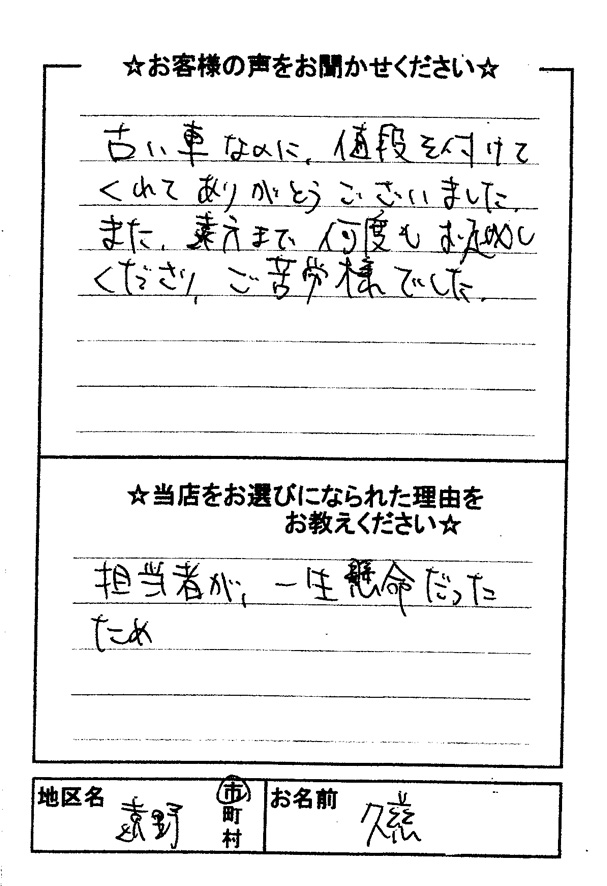 ☆お客様の声をお聞かせください☆
古い車なのに、値段を付けて
くれてありがとうございました。
また、遠方まで何度もお足運び
くださり、ご苦労様でした。
☆当店をお選びになられた理由を
お教えください☆
担当者が、一生懸命だった
ため
地区名 遠野 市
町
村
お名前 久慈